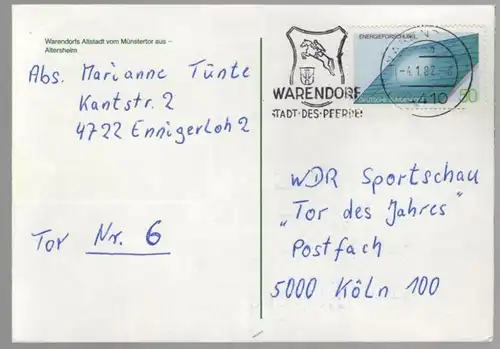 Warendorfs Altstadt vom Münstertor aus –
Altersheim
Abs. Marianne Tünte
Kantstr. 2
4722 Ennigerloh 2
Tor Nr. 6
ENERGIEFORSCHUNG
WARENDORF
STADT·DES·PFERDES
-4.1.82-
4410
50
WDR Sportschau
„Tor des Jahres"
Postfach
5000 Köln 100